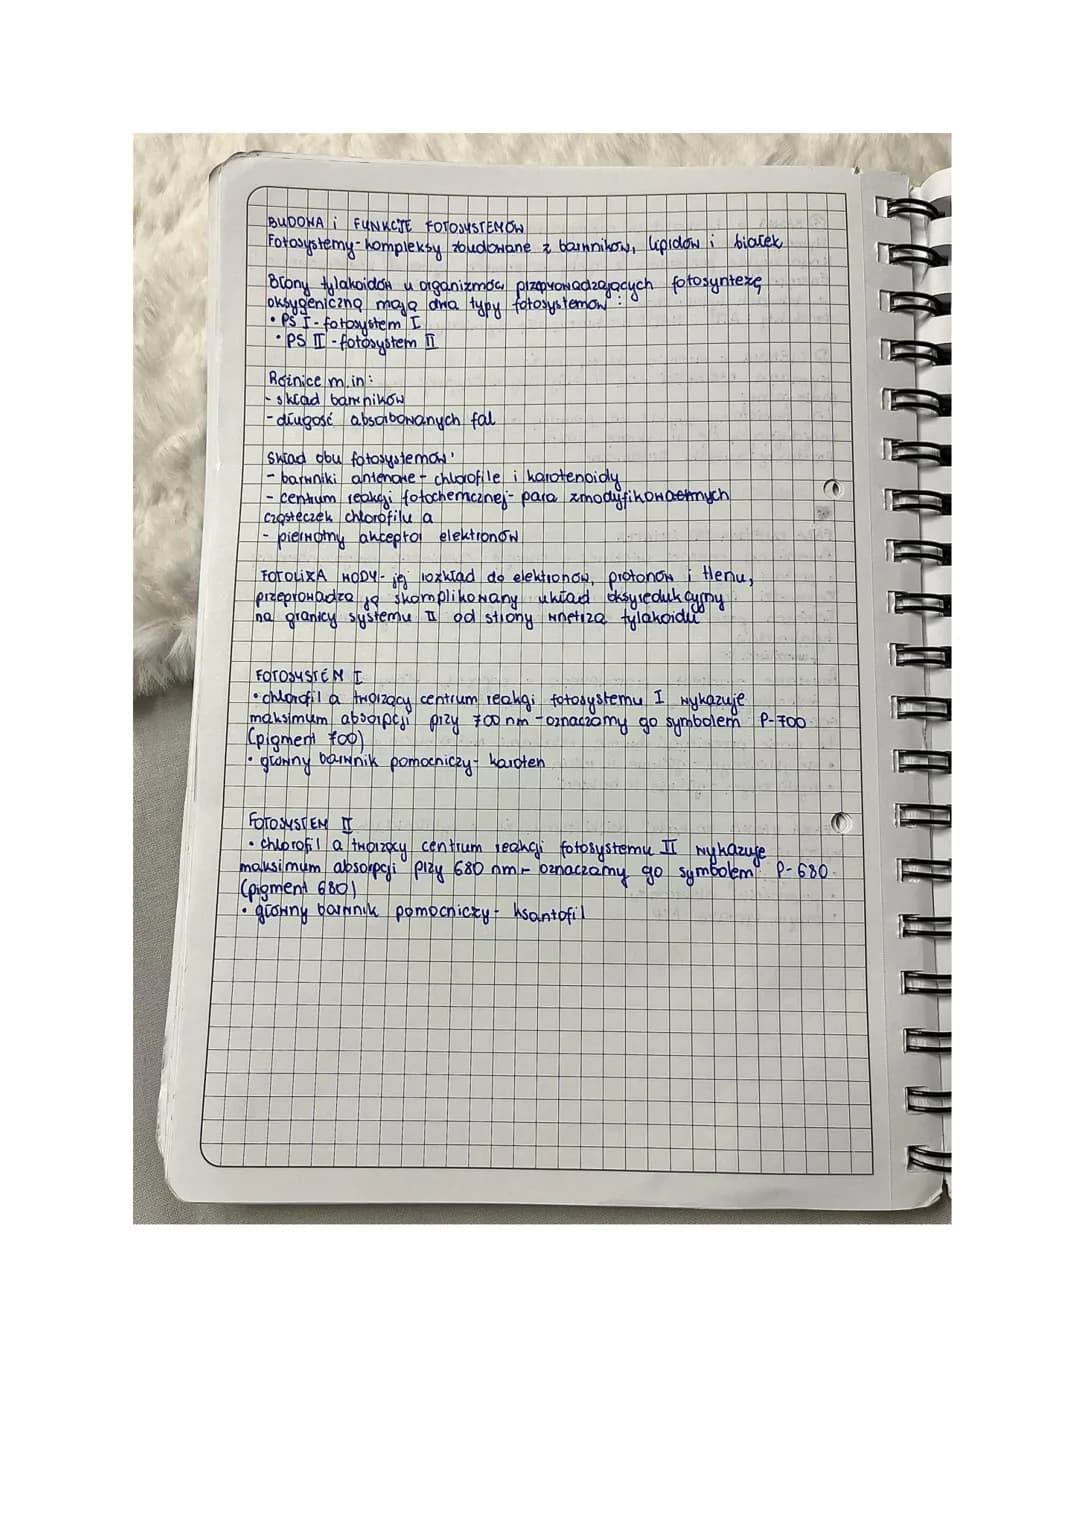 BUDOWA i FUNKCJE FOTOSYSTEMÓW
Fotosystemy- kompleksy zbudowane z barwników, lipidów i białek
Błony tylakoidów u organizmów przeprowadzających fotosyntezę
oksygeniczną mają dwa typy fotosystemów :
• PS I - fotosystem I
• PS II - fotosystem II
Różnice m.in:
- skład barwników
- długość absorbowanych fal
Skład obu fotosystemów:
- barwniki antenowe - chlorofile i karotenoidy
- centrum reakcji fotochemicznej- para zmodyfikowanych
cząsteczek chlorofilu a
- pierwotny akceptor elektronów
FOTOLIZA WODY- jej rozkład do elektronów, protonów i tlenu,
przeprowadza ją skomplikowany układ oksyredukcyjny
na granicy systemu II od strony wnętrza tylakoidu
FOTOSYSTEM I
• chlorofil a tworzący centrum reakcji fotosystemu I wykazuje
maksimum absorpcji przy 700 nm - oznaczamy go symbolem P-700
(pigment 700)
• główny barwnik pomocniczy- karoten
FOTOSYSTEM II
• chlorofil a tworzący centrum reakcji fotosystemu II wykazuje
maksimum absorpcji przy 680 nm - oznaczamy go symbolem P-680
(pigment 680)
• główny barwnik pomocniczy - ksantofil